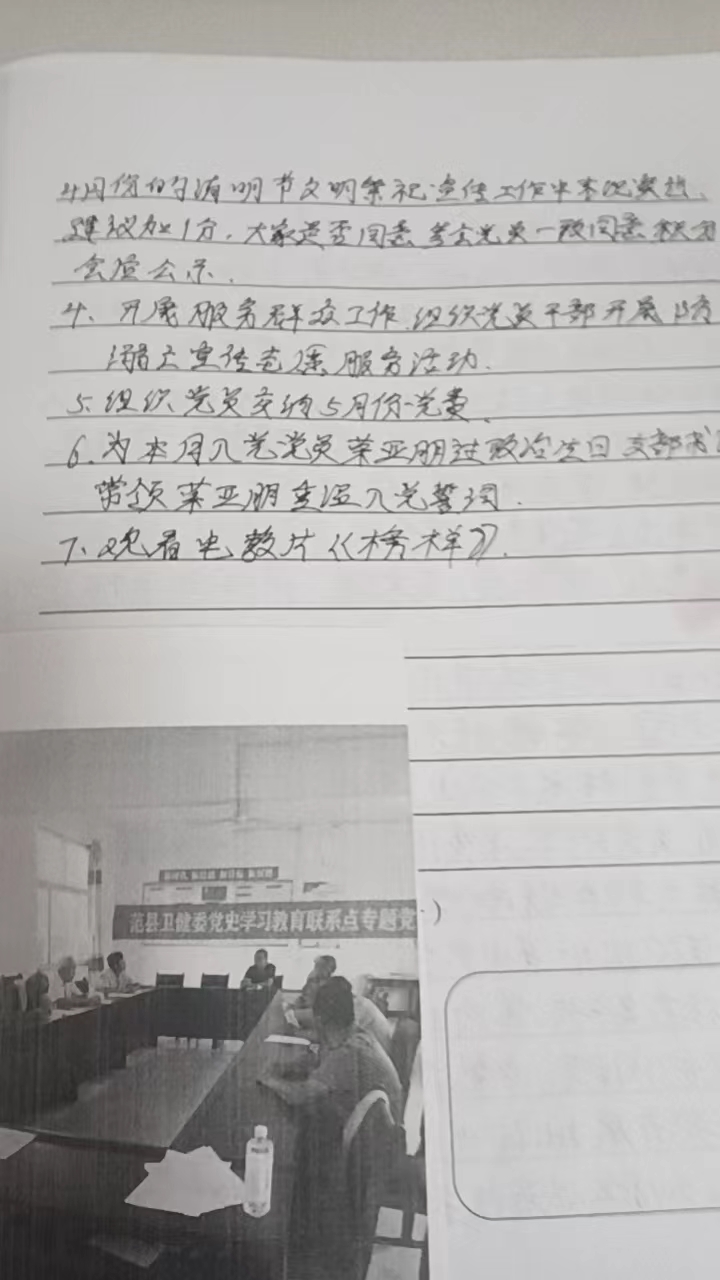 4月份的清明节文明祭祀宣传工作中表现突出、
建议加1分。大家是否同意 与会党员一致同意 积分
会后公示.
4、开展服务群众工作.组织党员干部开展防
溺亡宣传志愿服务活动.
5、组织党员交纳5月份党费、
6、为本月入党党员荣亚朋过政治生日 支部书
带领荣亚朋重温入党誓词.
7、观看电教片《榜样》.
范县卫健委党史学习教育联系点专题党
)